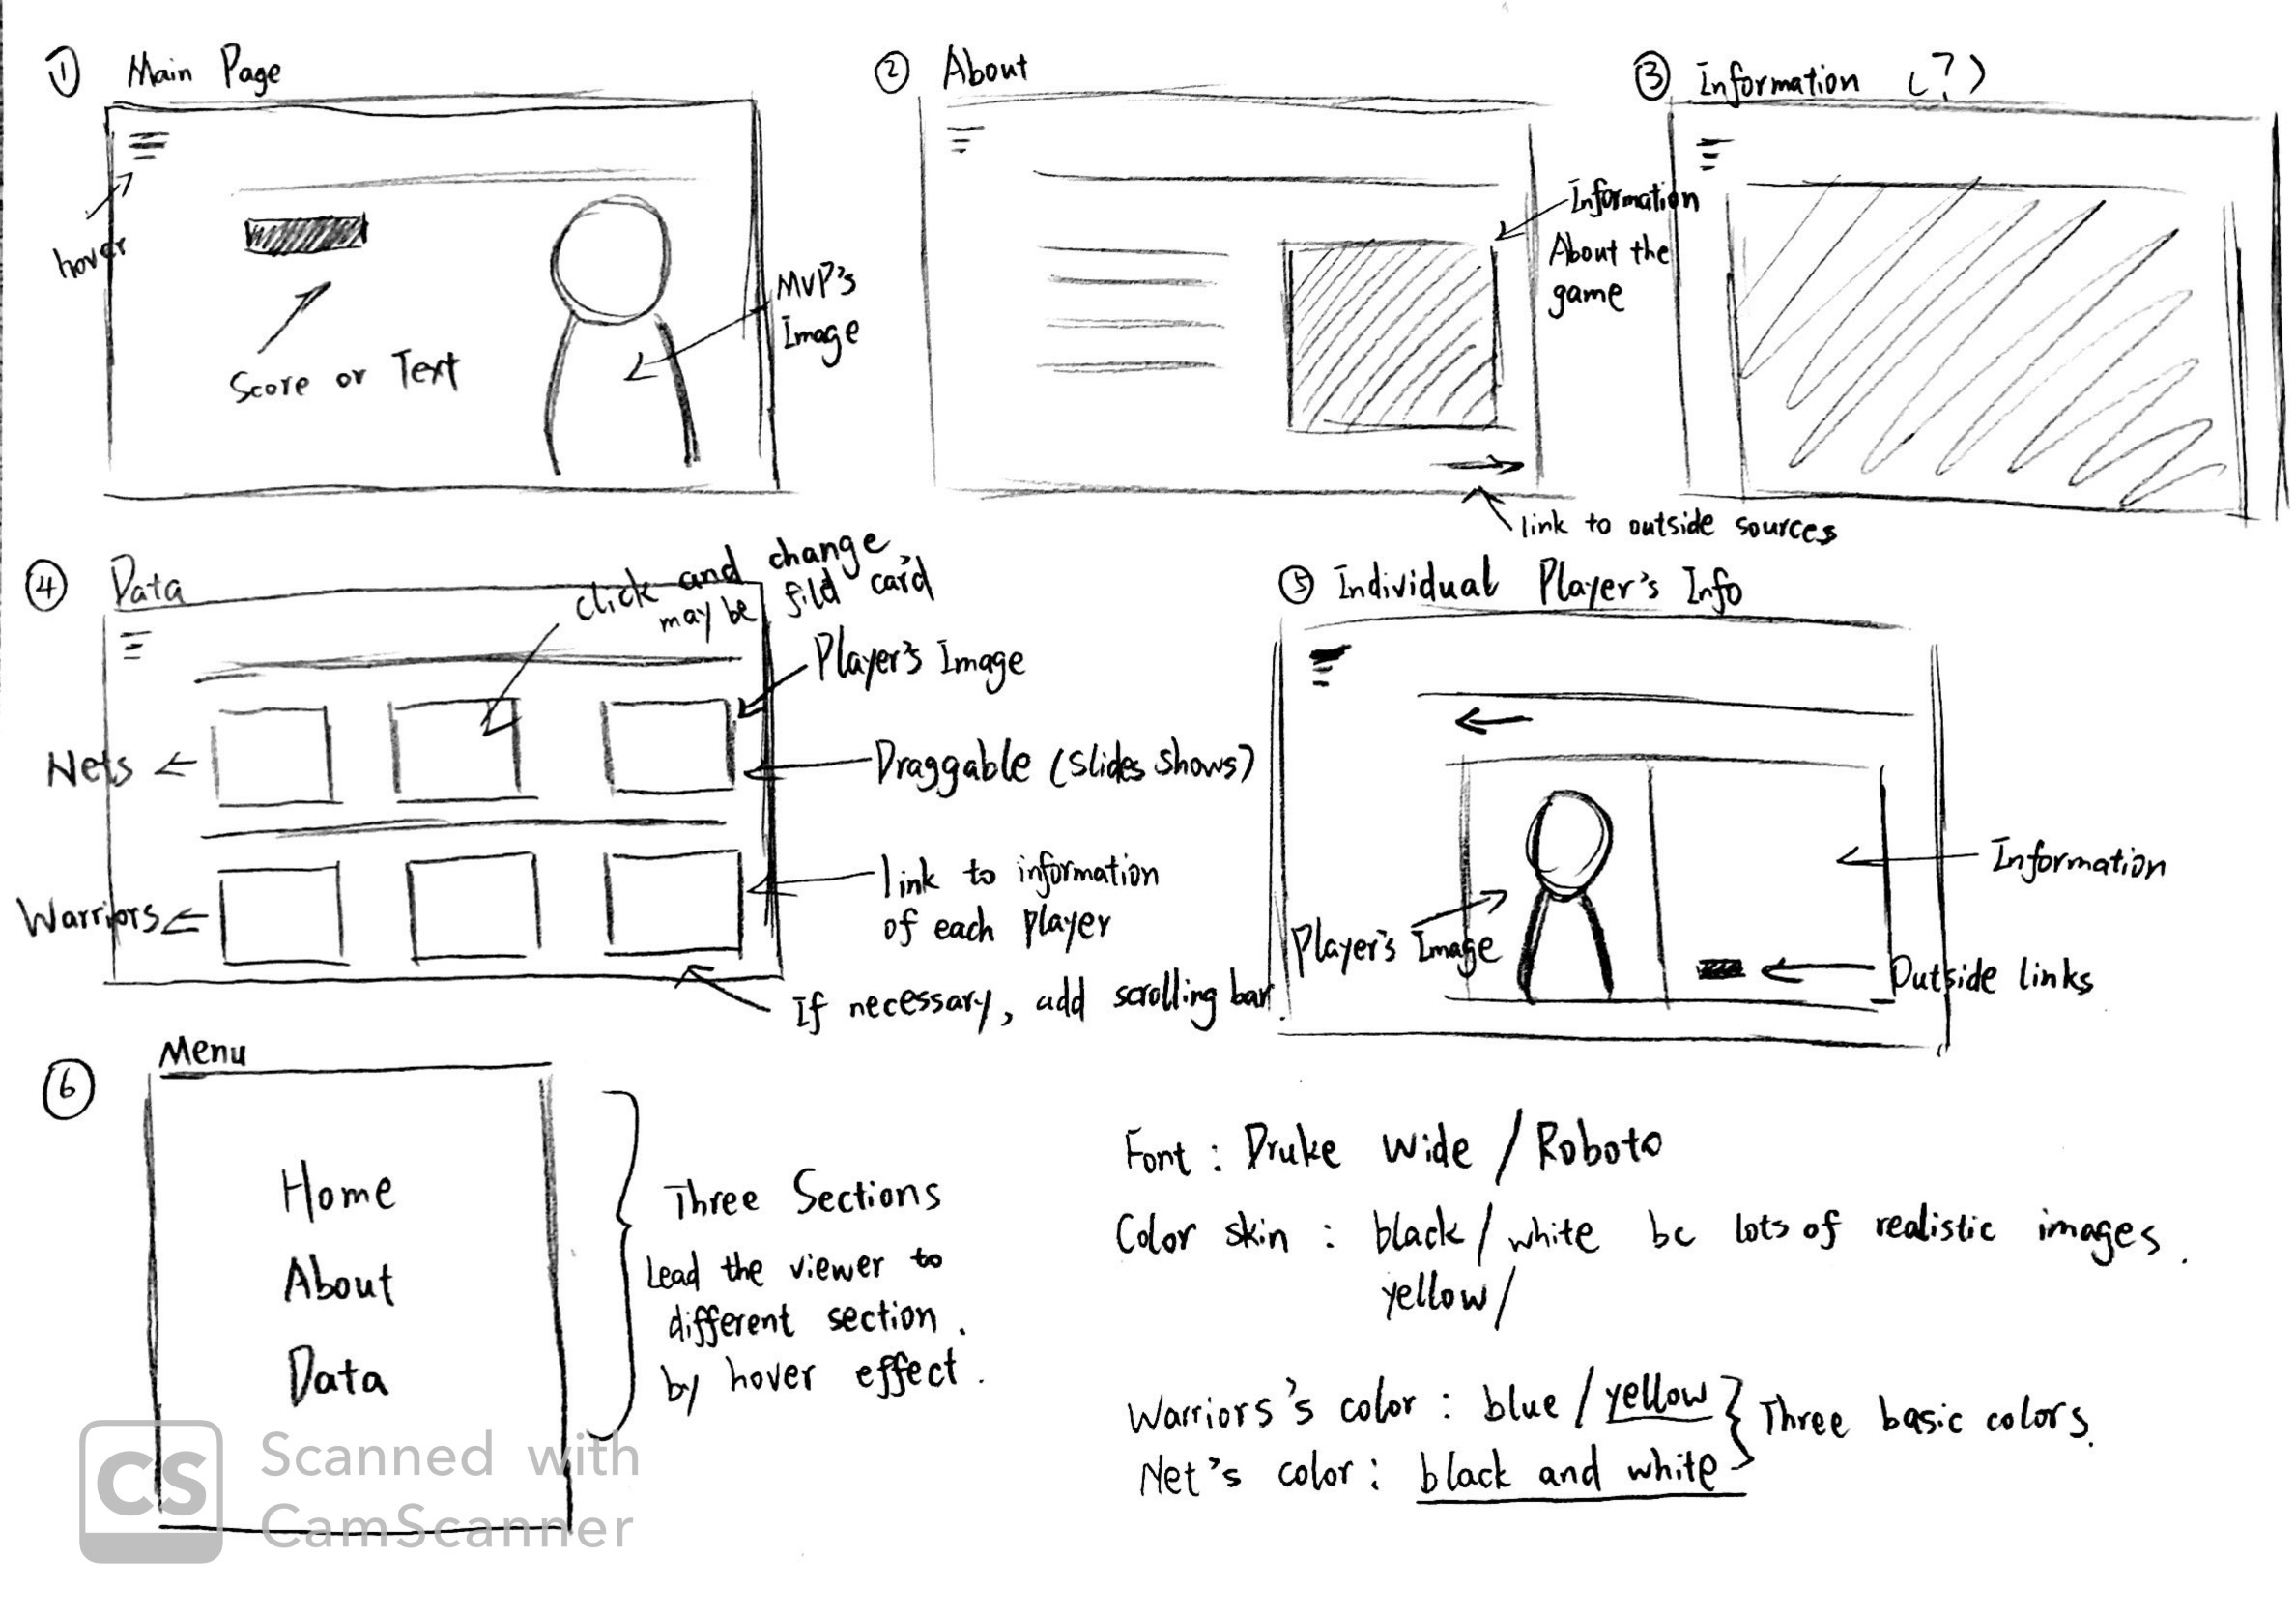 ① Main Page
hover
Score or Text
MVP's
Image
② About
Information
About the
game
link to outside sources
③ Information (?)
④ Data
click and change
may be fild card
Player's Image
Nets
Draggable (slides shows)
Warriors
link to information
of each player
If necessary, add scrolling bar.
⑤ Individual Player's Info
Player's Image
Information
Outside links
⑥ Menu
Home
About
Data
Three Sections
Lead the viewer to
different section.
by hover effect.
Font : Druke Wide / Roboto
Color skin : black / white bc lots of realistic images.
yellow /
Warriors's color : blue / yellow
Net's color : black and white
Three basic colors.
CS
Scanned with
CamScanner